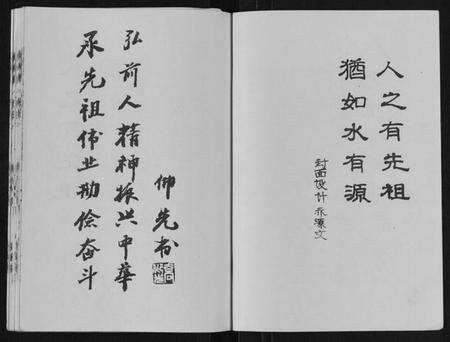 人之有先祖
猶如水有源
封面设计
承先祖伟业勤俭奋斗
弘前人精神振兴中华
先书